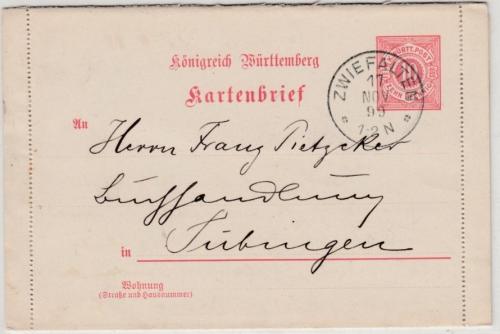 Königreich Württemberg
Kartenbrief
WÜRTT. POST
ZEHN
ZWIEFALTEN
17
NOV
99
1-2 N
An
Herrn Franz Pietzcker
Buchhandlung
in Tübingen
Wohnung
(Straße und Hausnummer)